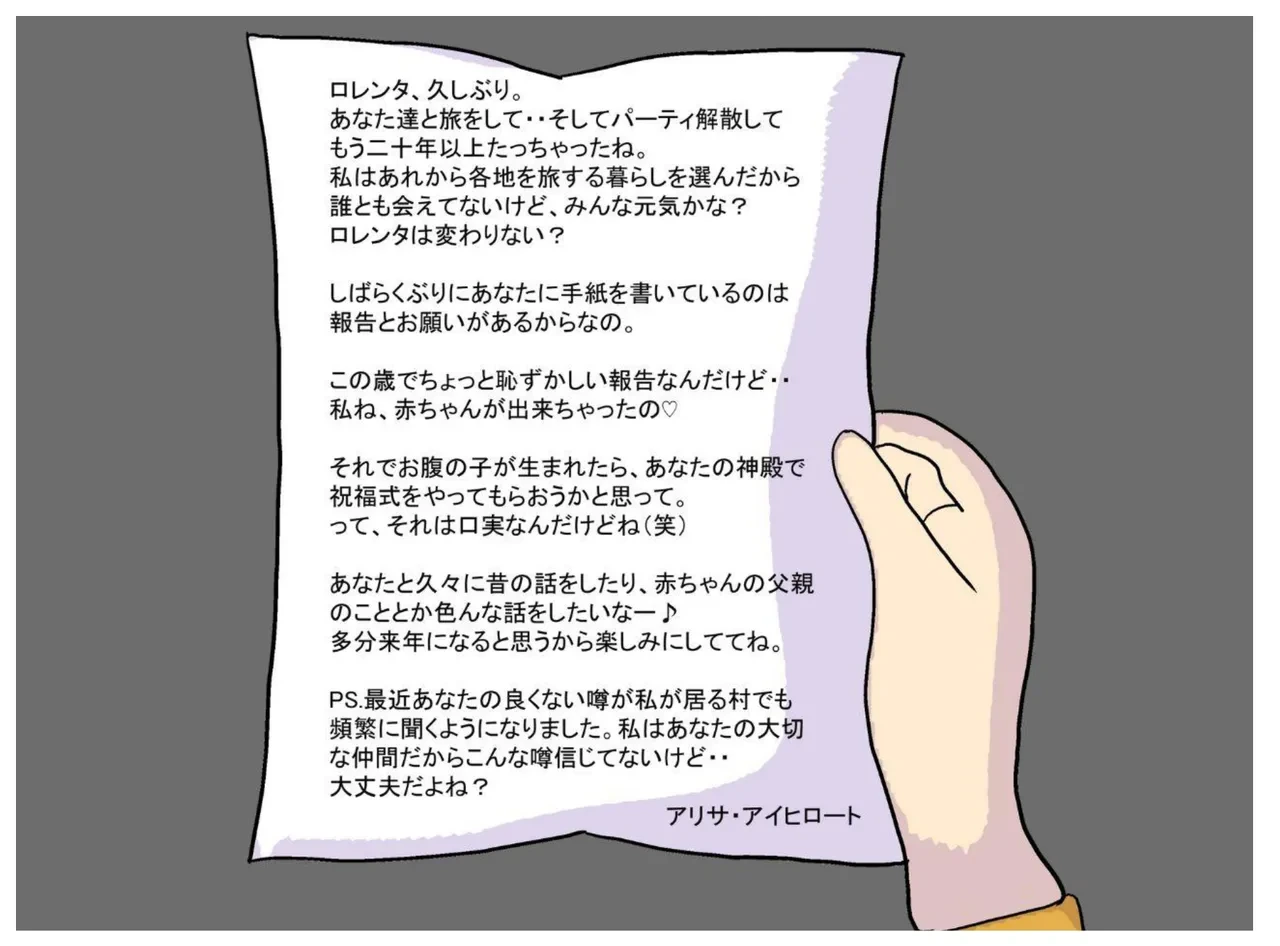 ロレンタ、久しぶり。
あなた達と旅をして‥そしてパーティ解散して
もう二十年以上たっちゃったね。
私はあれから各地を旅する暮らしを選んだから
誰とも会えてないけど、みんな元気かな？
ロレンタは変わりない？
しばらくぶりにあなたに手紙を書いているのは
報告とお願いがあるからなの。
この歳でちょっと恥ずかしい報告なんだけど‥
私ね、赤ちゃんが出来ちゃったの♡
それでお腹の子が生まれたら、あなたの神殿で
祝福式をやってもらおうかと思って。
って、それは口実なんだけどね（笑）
あなたと久々に昔の話をしたり、赤ちゃんの父親
のこととか色んな話をしたいなー♪
多分来年になると思うから楽しみにしててね。
PS.最近あなたの良くない噂が私が居る村でも
頻繁に聞くようになりました。私はあなたの大切
な仲間だからこんな噂信じてないけど‥
大丈夫だよね？
アリサ・アイヒロート